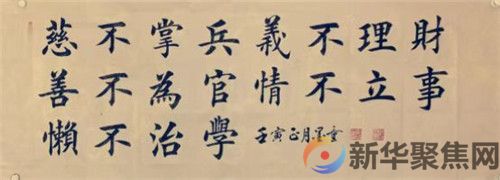 慈不掌兵義不理財
善不為官情不立事
懶不治學 壬寅正月
新华聚焦网